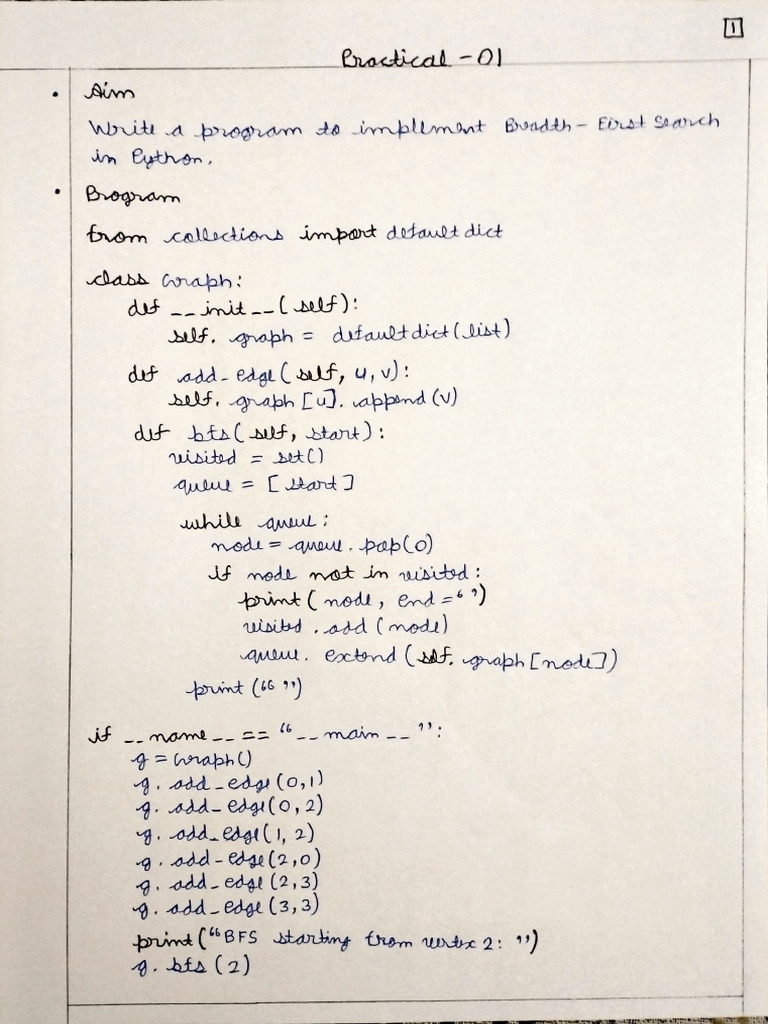 1
Practical - 01
• Aim
Write a program to implement Breadth - First Search
in Python.
• Program
from collections import defaultdict
class Graph:
def __init__(self):
self. graph = defaultdict(list)
def add_edge(self, u, v):
self. graph[u]. append(v)
def bfs(self, start):
visited = set()
queue = [start]
while queue:
node = queue. pop(0)
if node not in visited:
print(node, end = " ")
visited. add(node)
queue. extend(self. graph[node])
print(" ")
if __name__ == "__main__":
g = Graph()
g. add_edge(0,1)
g. add_edge(0,2)
g. add_edge(1, 2)
g. add_edge(2,0)
g. add_edge(2,3)
g. add_edge(3,3)
print("BFS starting from vertex 2: ")
g. bfs(2)